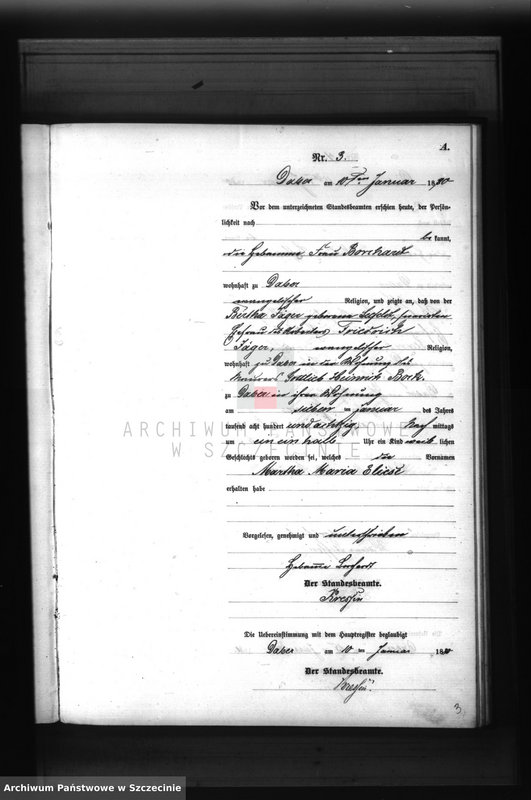 A.
Nr. 3.
Daber am 10ten Januar 1880
Vor dem unterzeichneten Standesbeamten erschien heute, der Persön-
lichkeit nach
bekannt,
die Hebamme Frau Borchardt
wohnhaft zu Daber
evangelischer Religion, und zeigte an, daß von der
Bertha Jäger geborene
Ehefrau des Arbeiters Friedrich
Jäger, evangelischer Religion,
wohnhaft zu Daber in der Wohnung des
Maurers Gottlieb Heinrich Bock.
zu Daber in ihrer Wohnung
am sieben ten Januar des Jahres
tausend acht hundert und achtzig Nach mittags
um ein ein halb Uhr ein Kind weib lichen
Geschlechts geboren worden sei, welches die Vornamen
Martha Maria Eliese
erhalten habe
Vorgelesen, genehmigt und unterschrieben
Hebamme Borchardt
Der Standesbeamte.
Die Uebereinstimmung mit dem Hauptregister beglaubigt
Daber am 10 ten Januar 1880
Der Standesbeamte.
3
ARCHIWUM PAŃSTWOWE
W SZCZECINIE
Archiwum Państwowe w Szczecinie